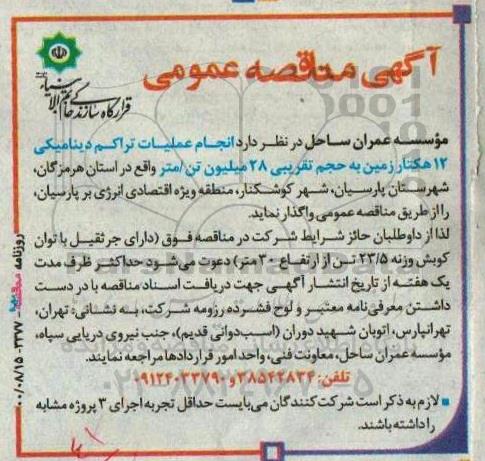 آگهی مناقصه عمومی
قرارگاه سازندگی خاتم الانبیاء
مؤسسه عمران ساحل در نظر دارد انجام عملیات تراکم دینامیکی
۱۲ هکتار زمین به حجم تقریبی ۲۸ میلیون تن/متر واقع در استان هرمزگان،
شهرستان پارسیان، شهر کوشکنار، منطقه ویژه اقتصادی انرژی بر پارسیان،
را از طریق مناقصه عمومی واگذار نماید.
لذا از داوطلبان حائز شرایط شرکت در مناقصه فوق (دارای جرثقیل با توان
کوبش وزنه ۲۳/۵ تن از ارتفاع ۳۰ متر) دعوت می‌شود حداکثر ظرف مدت
یک هفته از تاریخ انتشار آگهی جهت دریافت اسناد مناقصه با در دست
داشتن معرفی‌نامه معتبر و لوح فشرده رزومه شرکت، به نشانی: تهران،
تهرانپارس، اتوبان شهید دوران (اسب‌دوانی قدیم)، جنب نیروی دریایی سپاه،
مؤسسه عمران ساحل، معاونت فنی، واحد امور قراردادها مراجعه نمایند.
تلفن: ۳۸۵۴۲۸۳۴ و ۰۹۱۲۴۰۳۳۷۹۰
لازم به ذکر است شرکت‌کنندگان می‌بایست حداقل تجربه اجرای ۳ پروژه مشابه
را داشته باشند.
روزنامه مناقصه - ۳۳۷۷ - ۰۰/۰۸/۱۵
ParsNamadData